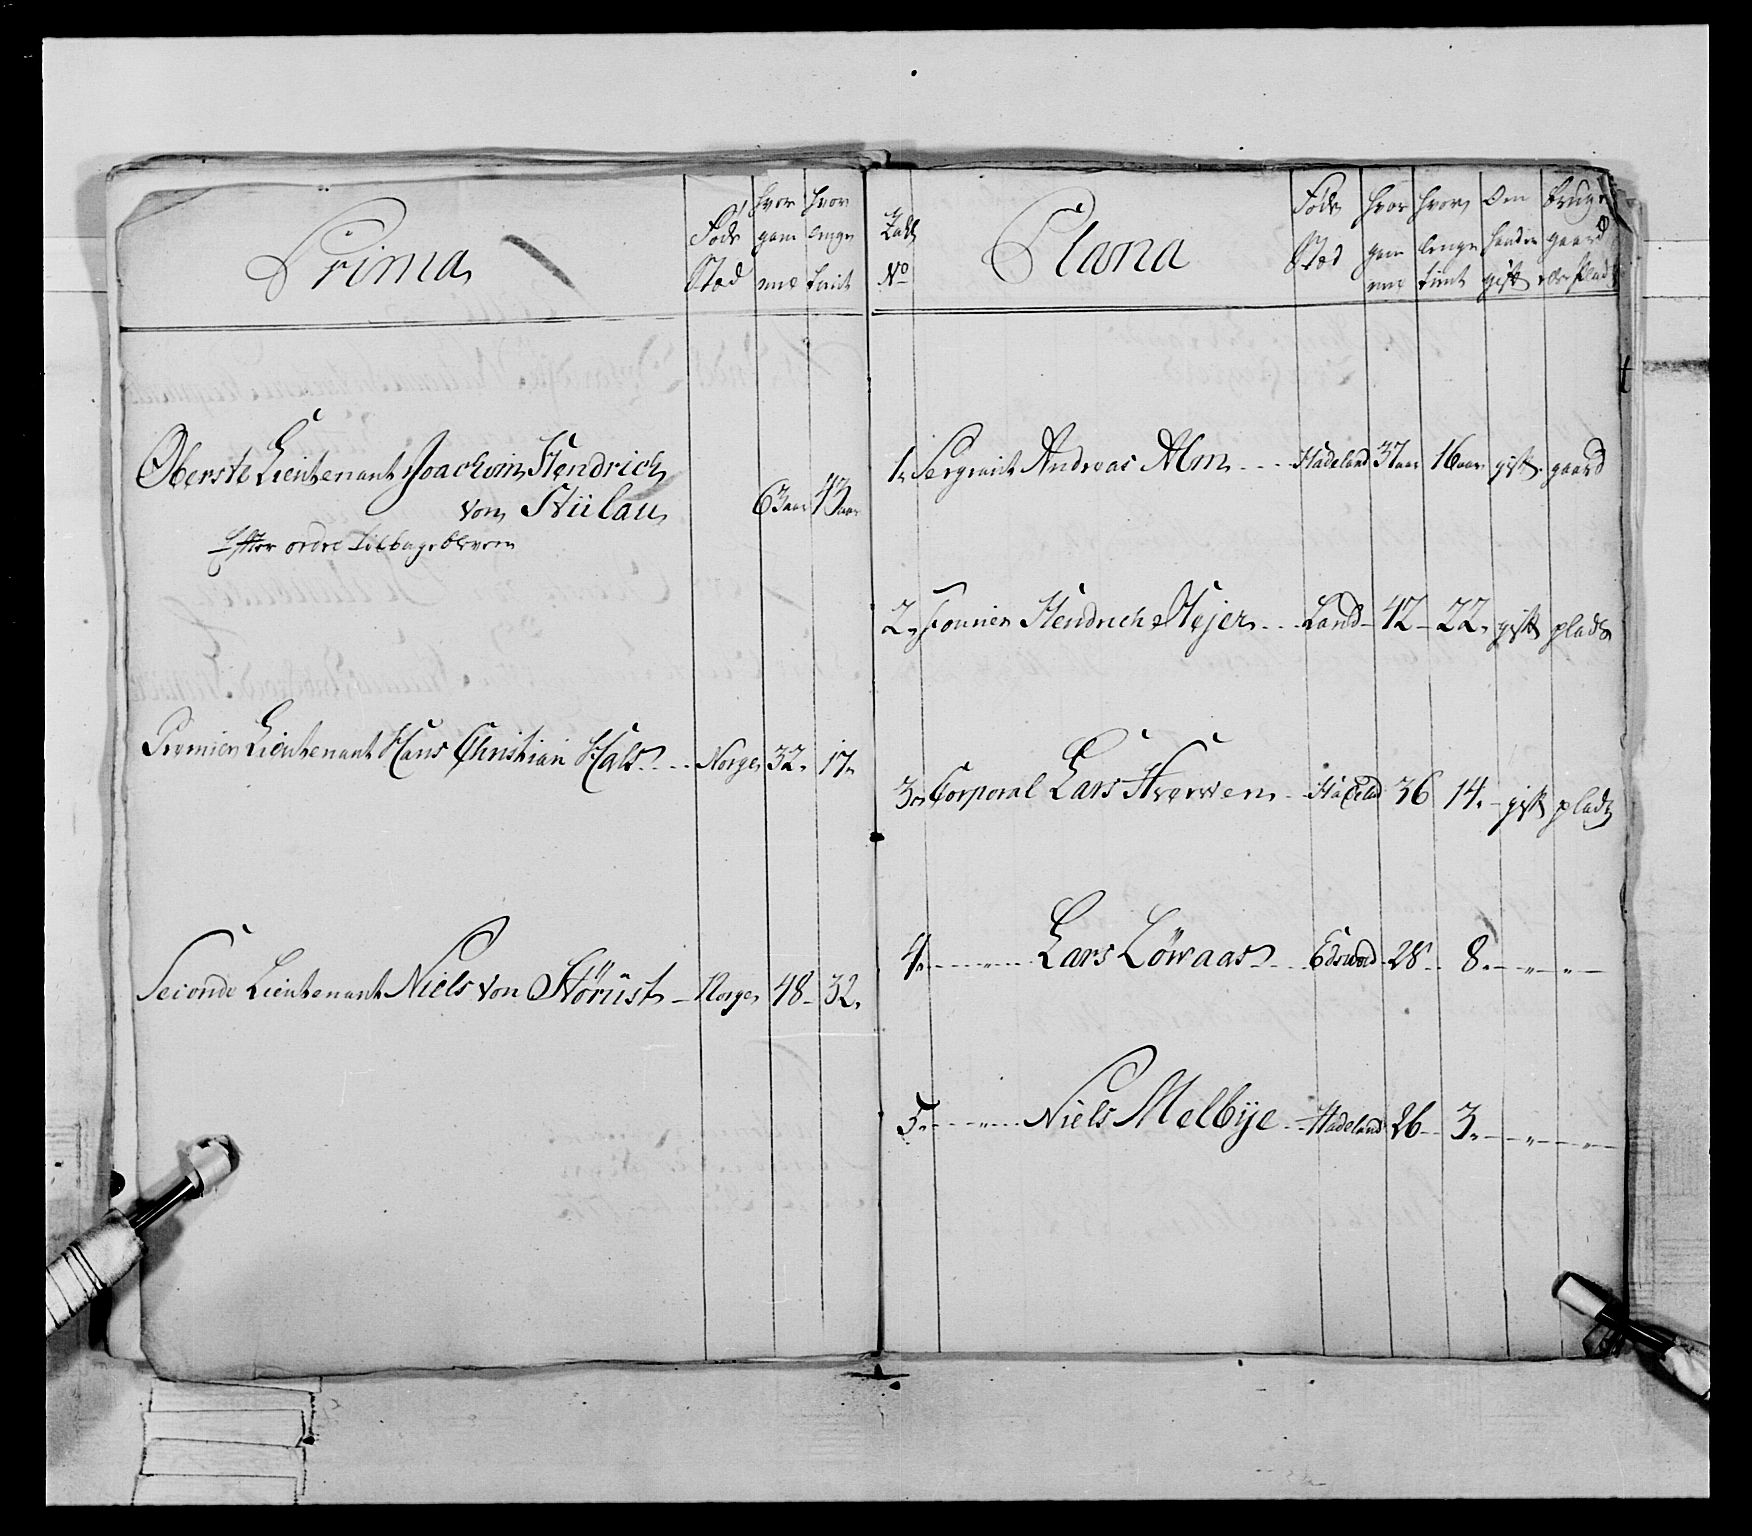 Prima
Føde Stæd
hvor gam mel
hvor lenge tient
Oberste Lieutenant Joachim Hendrich
von Stülau 63 aar 43 aar
Efter ordre tilbage bleven
Premier Lieutenant Hans Christian Hals Norge 32 17
Seconde Lieutenant Niels von Størüst Norge 48 32
Talt No
Plana
Føde Stæd
hvor gam mel
hvor lenge tient
Om hand er gift
bruger gaard eller plads
1 Sergeant Andreas Alm Hadeland 37 aar 16 aar gift gaard
2 Fourier Hendrich Mejer Land 42 22 gift plads
3 Corporal Lars Hverven Hadelad 36 14 gift plads
4 " Lars Löwaas Edsvold 28 8 " "
5 " Niels Melbÿe Hadeland 26 3 " "